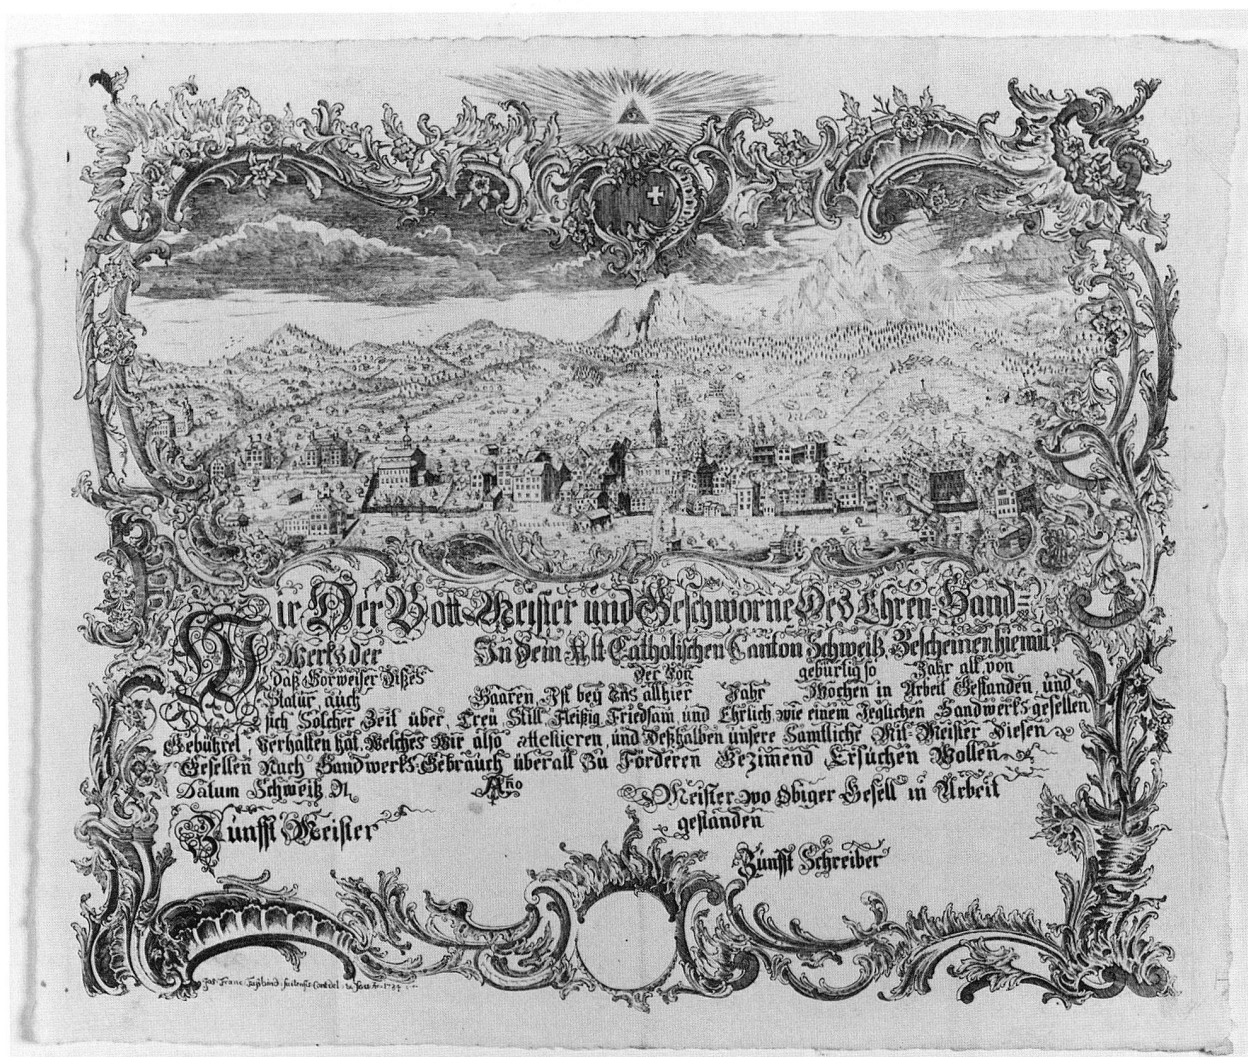 Wir Der Bott-Meister und Geschworne Des Ehren-Hand=
Werks der In Dem Alt Catholischen Canton Schweitz, Bescheinen hiemit
daß Vorweiser Dises Der Von gebürtig so Jahr alt, von
Statur, auch Haaren, Ist bey Uns allhier Jahr Wochen in Arbeit Gestanden, und
sich Solcher Zeit über, Treü, Still, Fleißig, Friedsam, und Ehrlich, wie einem Jeglichen Handwerks-gesellen
Gebühret, Verhalten hat, Welches Wir also attestieren, und Deßhalben unsere Sämtliche Mit-Meister Diesen
Gesellen Nach Handwerks-Gebrauch überall Zu Förderen Gezimend Ersuchen Wollen
Datum Schweitz
Año
Meister wo Obiger Gesell in Arbeit
gestanden
Zünfft Meister
Zünfft Schreiber
Jos. Franc. del. 1784